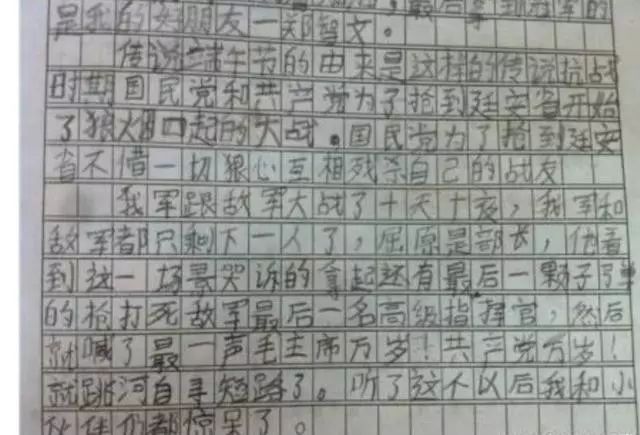 最后拿到冠军的
是我的好朋友一郑智文。
传说端午节的由来是这样的传说抗战
时期国民党和共产党为了抢到廷安省开始
了狼烟四起的大战。国民党为了抢到廷安
省不惜一切狠心互相残杀自己的战友
我军跟敌军大战了十天十夜，我军和
敌军都只剩下一人了，屈原是部长，他看
到这一场景哭诉的拿起还有最后一颗子弹
的枪打死敌军最后一名高级指挥官，然后
就喊了最一声毛主席万岁！共产党万岁！
就跳河自寻短路了。听了这个以后我和小
伙伴们都惊呆了。